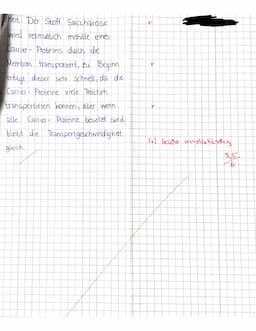 Der Stoff Saccharose r
wird vermutlich mithilfe eines
Carrier- Proteins durch die
Membran transportiert, Zu Beginn r
erfolgt dieser sehr schnell, da die
Carrier- Proteine viele Teilchen
transportieren können, aber wenn r
alle Carrier- Proteine besetzt sind
bleibt die Transportgeschwindigkeit
gleich.
3,5
6